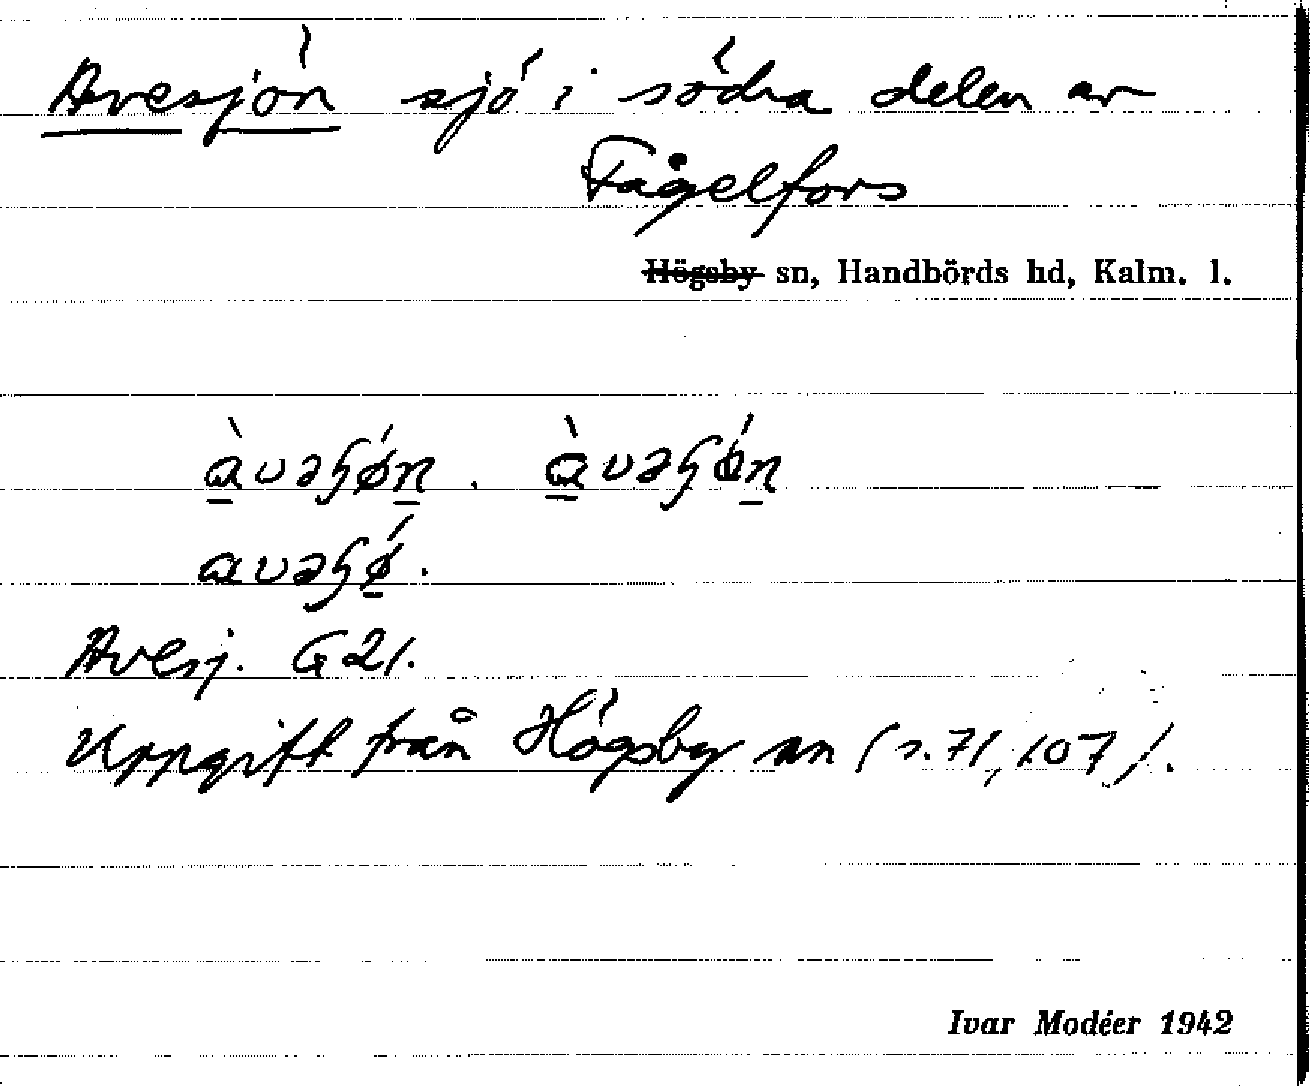 Avesjön sjö i södra delen av
Fågelfors
Högsby sn, Handbörds hd, Kalm. l.
Avesj. G 21.
Uppgift från Högsby sn (s. 71, 107).
Ivar Modéer 1942